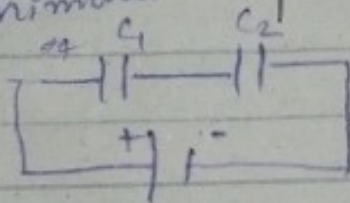 C₁ C₂
+q
+ -